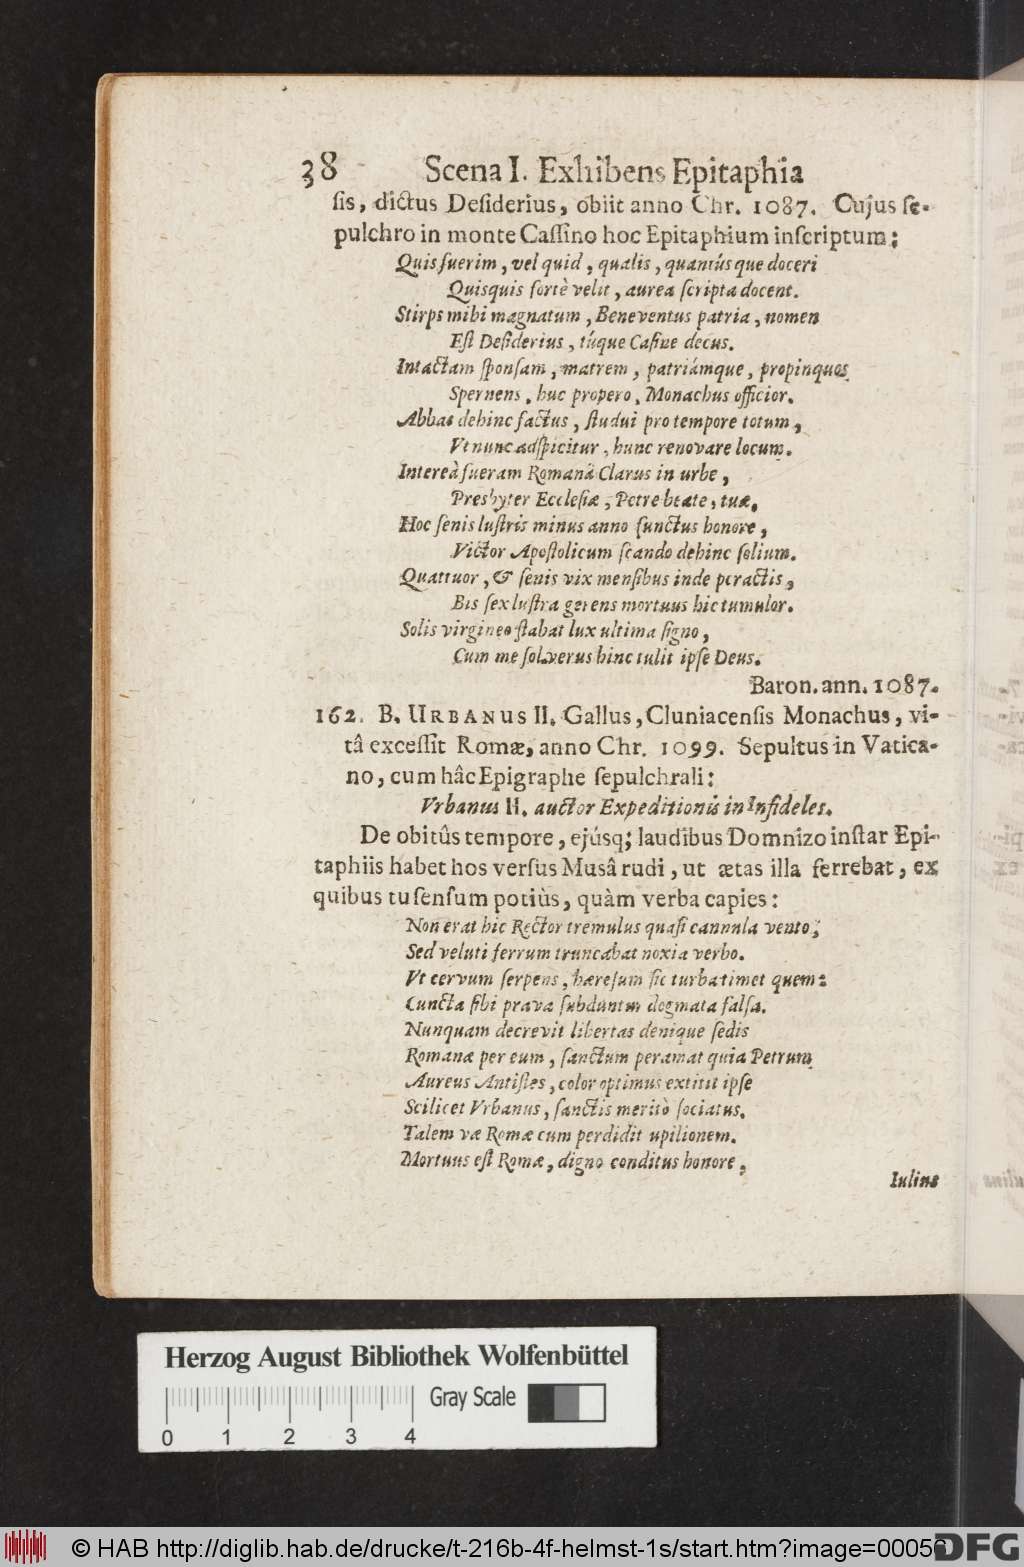 38 Scena I. Exhibens Epitaphia
sis, dictus Desiderius, obiit anno Chr. 1087. Cujus se-
pulchro in monte Cassino hoc Epitaphium inscriptum:
Quis fuerim, vel quid, qualis, quantúsque doceri
Quisquis fortè velit, aurea scripta docent.
Stirps mihi magnatum, Beneventus patria, nomen
Est Desiderius, túque Casine decus.
Intactam sponsam, matrem, patriámque, propinquos,
Spernens, huc propero, Monachus officior.
Abbas dehinc factus, studui pro tempore totum,
Vt nunc adspicitur, hunc renovare locum.
Intereà fueram Romanâ Clarus in urbe,
Presbyter Ecclesiæ, Petre beate, tuæ.
Hoc senis lustris minus anno functus honore,
Victor Apostolicum scando dehinc solium.
Quattuor, & senis vix mensibus inde peractis,
Bis sex lustra gerens mortuus hic tumulor.
Solis virgineo stabat lux ultima signo,
Cum me sol verus hinc tulit ipse Deus.
Baron. ann. 1087.
162. B. URBANUS II. Gallus, Cluniacensis Monachus, vi-
tâ excessit Romæ, anno Chr. 1099. Sepultus in Vatica-
no, cum hâc Epigraphe sepulchrali:
Vrbanus II. auctor Expeditionis in Infideles.
De obitûs tempore, ejúsq; laudibus Domnizo instar Epi-
taphiis habet hos versus Musâ rudi, ut ætas illa ferrebat, ex
quibus tu sensum potiùs, quàm verba capies:
Non erat hic Rector tremulus quasi cannula vento;
Sed veluti ferrum truncabat noxia verbo.
Vt cervum serpens, hæresum sic turba timet quem:
Cuncta sibi prava subduntur dogmata falsa.
Nunquam decrevit libertas denique sedis
Romanæ per eum, sanctum peramat quia Petrum
Aureus Antistes, color optimus extitit ipse
Scilicet Vrbanus, sanctis meritò sociatus.
Talem væ Romæ cum perdidit upilionem.
Mortuus est Romæ, digno conditus honore,
Iulius
Herzog August Bibliothek Wolfenbüttel
Gray Scale
0 1 2 3 4
© HAB http://diglib.hab.de/drucke/t-216b-4f-helmst-1s/start.htm?image=00056
DFG